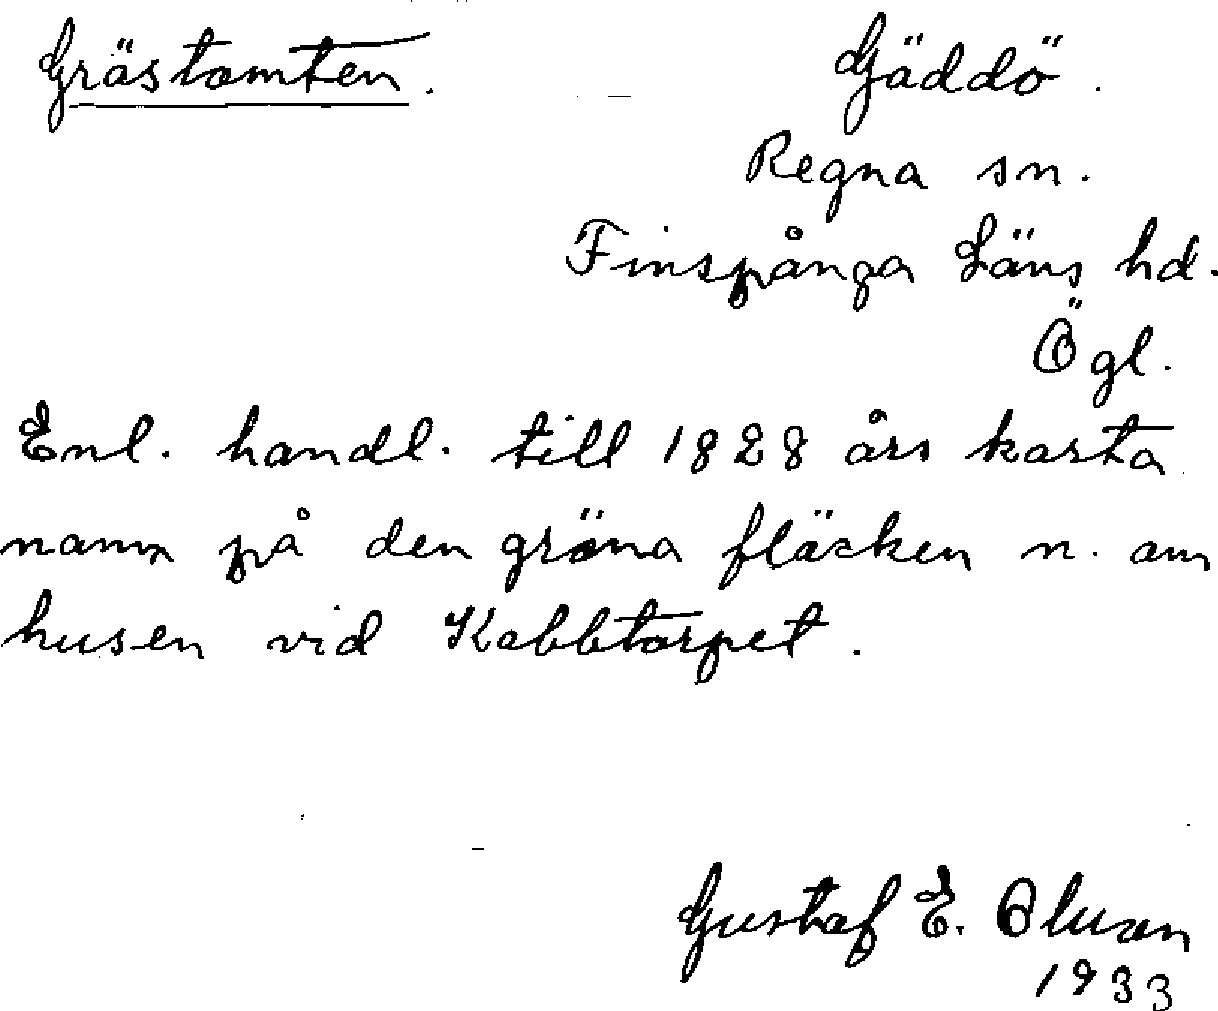 Grästomten. Gäddö.
Regna sn.
Finspånga Läns hd.
Ögl.
Enl. handl. till 1828 års karta
namn på den gröna fläcken n. om
husen vid Kabbtorpet.
Gustaf E. Oluson
1933